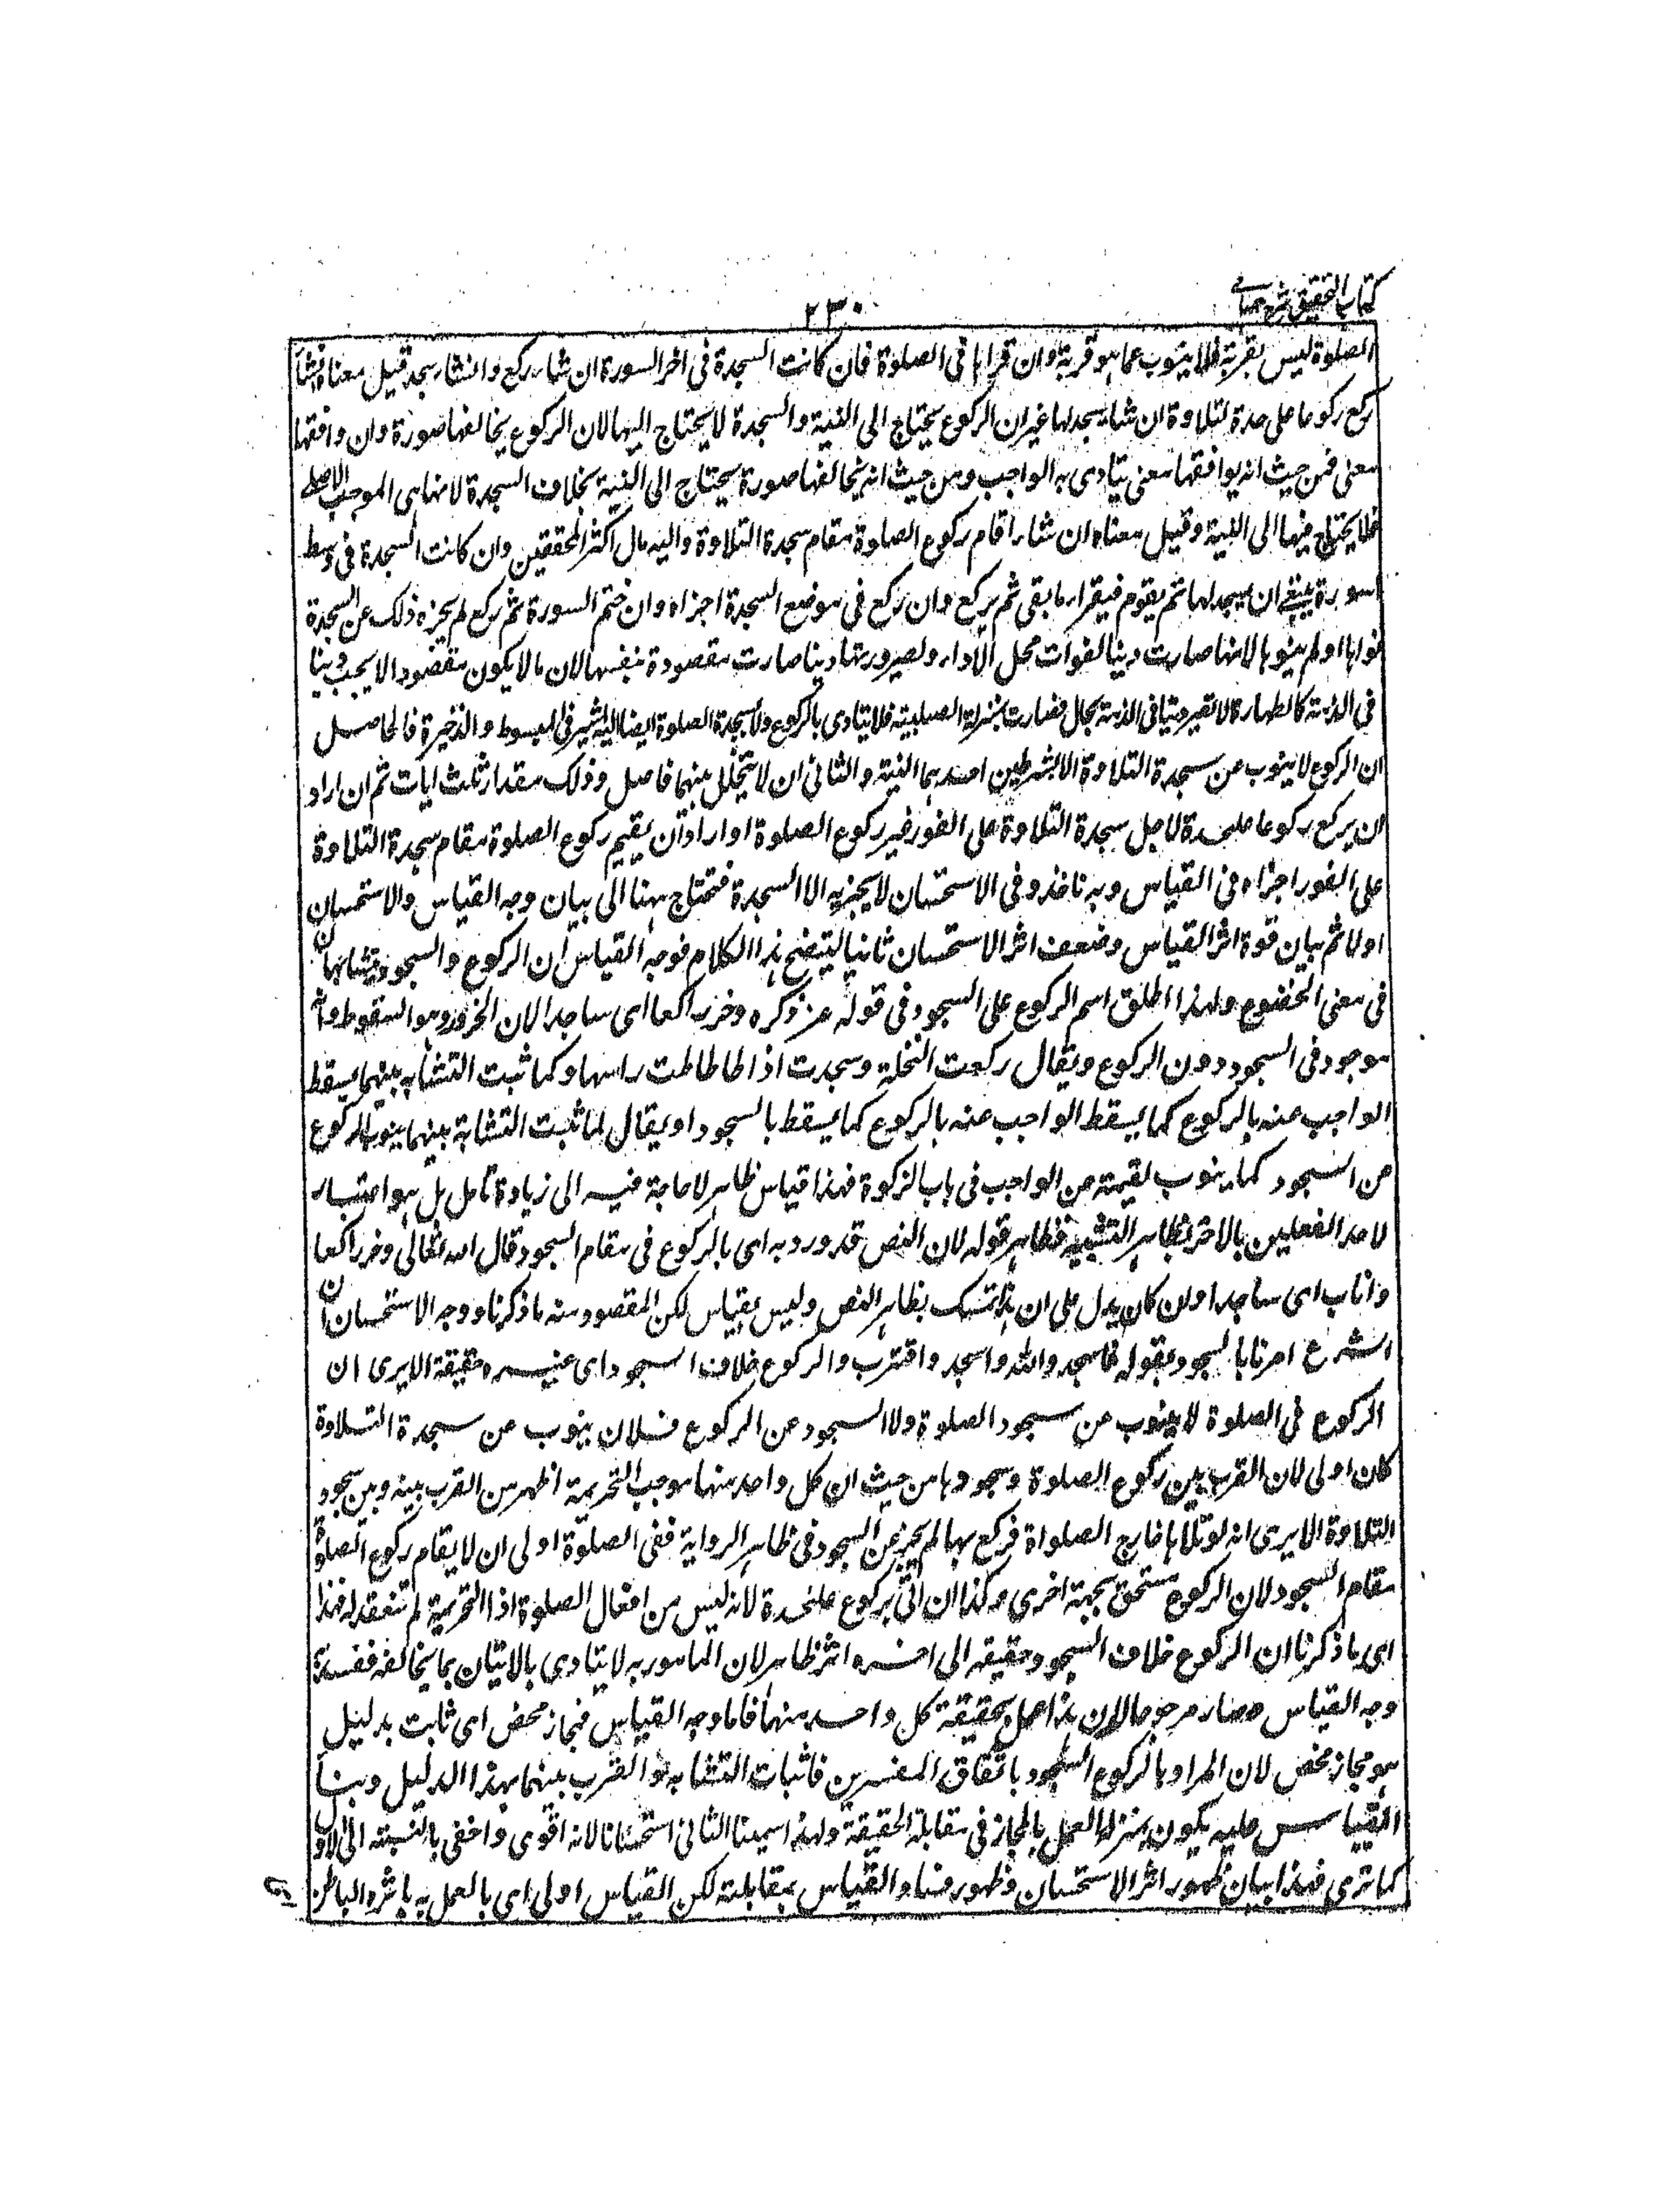 كتاب التحقيق شرح حسامي
٢٣٠
الصلوة ليس بقربة فلا ينوب عما هو قربة وان قرأها فى الصلوة فان كانت السجدة فى اخر السورة ان شاء ركع وان شاء سجد قيل معناه ان شاء
ركع ركوعا على حدة لتلاوة ان شاء سجد لها غير ان الركوع يحتاج الى النية والسجدة لا يحتاج اليها لان الركوع يخالفها صورة وان وافقها
معنى فمن حيث انه يوافقها معنى يتادى به الواجب ومن حيث انه يخالفها صورة يحتاج الى النية بخلاف السجدة لانها هى الموجب الاصلى
فلا يحتاج فيها الى النية وقيل معناه ان شاء اقام ركوع الصلوة مقام سجدة التلاوة واليه مال اكثر المحققين وان كانت السجدة فى وسط
السورة ينبغى ان يسجد لها ثم يقوم فيقرأ ما بقى ثم يركع وان ركع فى موضع السجدة اجزاه وان ختم السورة ثم ركع لم يجزه ذلك عن السجدة
نواها او لم ينوها لانها صارت دينا لفوات محل الاداء ولصيرورتها دينا صارت مقصودة بنفسها لان ما لا يكون مقصودا لا يجب دينا
فى الذمة كالطهارة لا تصير دينا فى الذمة بحال فصارت بمنزلة الصلبية فلا يتادى بالركوع ولا بسجدة الصلوة ايضا اليه اشير فى المبسوط والذخيرة فالحاصل
ان الركوع لا ينوب عن سجدة التلاوة الا بشرطين احدهما النية والثانى ان لا يتخلل بينهما فاصل وذلك مقدار ثلث ايات ثم ان اراد
ان يركع ركوعا علىحدة لاجل سجدة التلاوة على الفور غير ركوع الصلوة او اراد ان يقيم ركوع الصلوة مقام سجدة التلاوة
على الفور اجزاه فى القياس وبه ناخذ وفى الاستحسان لا يجزيه الا السجدة فتحتاج ههنا الى بيان وجه القياس والاستحسان
اولا ثم بيان قوة اثر القياس وضعف اثر الاستحسان ثانيا ليتضح هذا الكلام فوجه القياس ان الركوع والسجود يتشابهان
فى معنى الخضوع ولهذا اطلق اسم الركوع على السجود فى قوله عز ذكره وخر راكعا اى ساجدا لان الخرور وهو السقوط
موجود فى السجود دون الركوع ويقال ركعت النخلة وسجدت اذا طاطات راسها وكما ثبت التشابه بينهما يسقط
الواجب عنه بالركوع كما يسقط الواجب عنه بالركوع كما يسقط بالسجود او يقال لما ثبت التشابه بينهما ينوب الركوع
عن السجود كما ينوب القيمة عن الواجب فى باب الزكوة فهذا قياس ظاهر لا حاجة فيه الى زيادة تامل بل هو اعتبار
لاحد الفعلين بالاخر بظاهر التشبيه فظاهر قوله لان النص قد ورد به اى بالركوع فى مقام السجود قال الله تعالى وخر راكعا
واناب اى ساجدا وان كان يدل على ان هذا تمسك بظاهر النص وليس بقياس لكن المقصود منه ما ذكرنا ووجه الاستحسان ان
الشرع امرنا بالسجود بقوله فاسجدوا لله واسجد واقترب والركوع خلاف السجود اى غيره حقيقة الا يرى ان
الركوع فى الصلوة لا ينوب عن سجود الصلوة ولا السجود عن الركوع فلان ينوب عن سجدة التلاوة
كان اولى لان القرب بين ركوع الصلوة وسجودها من حيث ان كل واحد منهما موجب التحريمة اظهر من القرب بينه وبين سجود
التلاوة الا يرى انه لو تلاها خارج الصلواة فركع بها لم يجز عن السجود فى ظاهر الرواية ففى الصلوة اولى ان لا يقام ركوع الصلوة
مقام السجود لان الركوع مستحق بجهة اخرى وهكذا ان اتى بركوع علىحدة لانه ليس من افعال الصلوة اذ التحريمة لم تنعقد له فهذا
اى ما ذكرنا ان الركوع خلاف السجود حقيقة الى اخره اثر ظاهر لان المامور به لا يتادى بالاتيان بما يخالفه ففسد به
وجه القياس وصار مرجوحا لان هذا عمل بحقيقة كل واحد منهما فاما وجه القياس فمجاز محض اى ثابت بدليل
هو مجاز محض لان المراد بالركوع السجود باتفاق المفسرين فاثبات التشابه او القرب بينهما بهذا الدليل وبناء
القياس عليه يكون بمنزلة العمل بالمجاز فى مقابلة الحقيقة ولهذا سمينا الثانى استحسانا لانه اقوى واخفى بالنسبة الى الاول
كما ترى فهذا بيان ظهور اثر الاستحسان وظهور فساد القياس بمقابلته لكن القياس اولى اى بالعمل به باثره الباطن